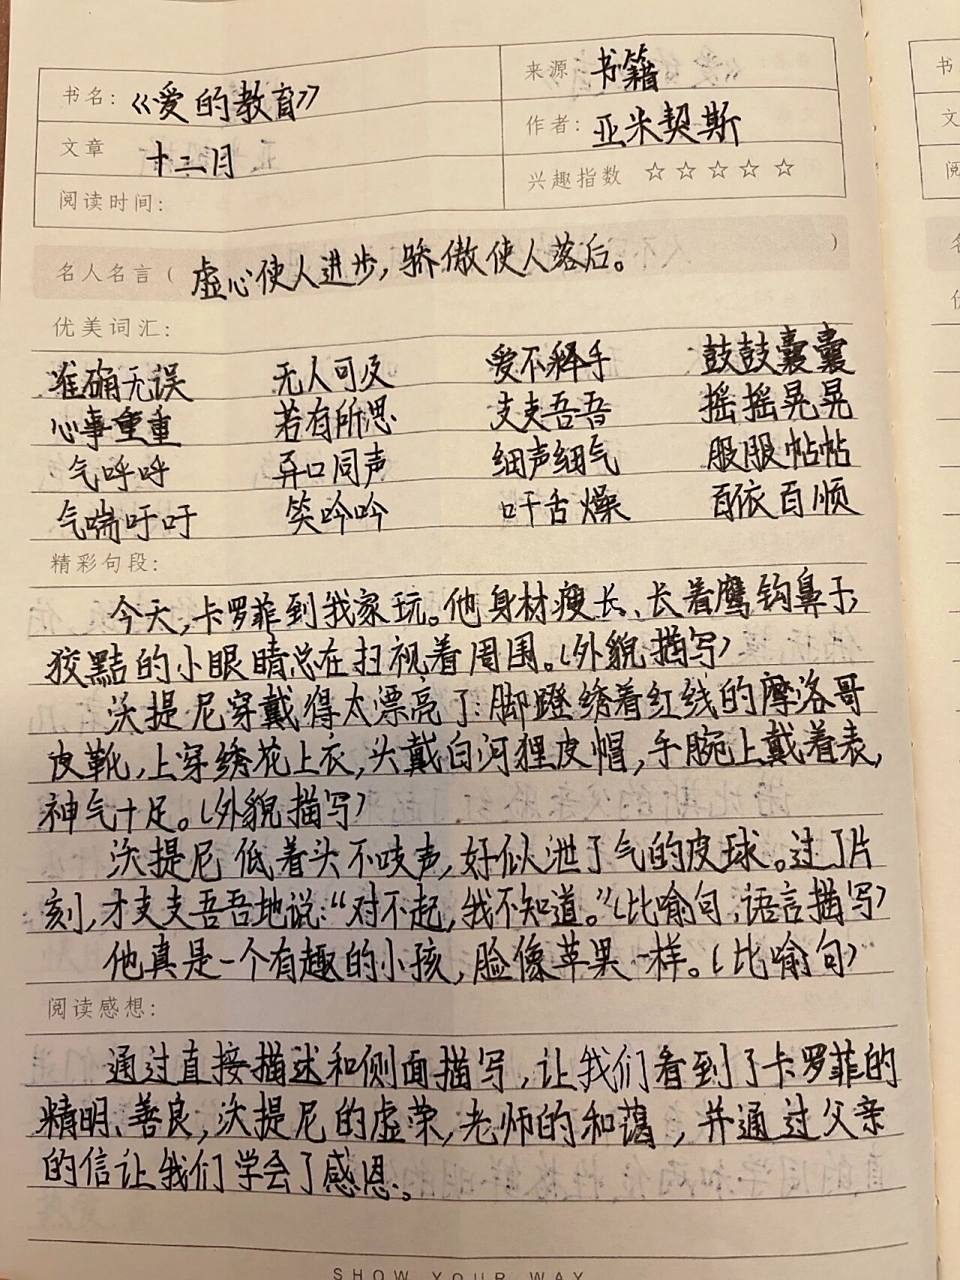 书名：《爱的教育》 来源 书籍
文章 十二月 作者：亚米契斯
阅读时间： 兴趣指数 ☆☆☆☆☆
名人名言（ 虚心使人进步，骄傲使人落后。 ）
优美词汇：
准确无误 无人可及 爱不释手 鼓鼓囊囊
心事重重 若有所思 支支吾吾 摇摇晃晃
气呼呼 异口同声 细声细气 服服帖帖
气喘吁吁 笑吟吟 口干舌燥 百依百顺
精彩句段：
今天，卡罗菲到我家玩。他身材瘦长、长着鹰钩鼻子，
狡黠的小眼睛总在扫视着周围。（外貌描写）
沃提尼穿戴得太漂亮了：脚蹬绣着红线的摩洛哥
皮靴，上穿绣花上衣，头戴白河狸皮帽，手腕上戴着表，
神气十足。（外貌描写）
沃提尼低着头不吱声，好似泄了气的皮球。过了片
刻，才支支吾吾地说：“对不起，我不知道。”（比喻句，语言描写）
他真是一个有趣的小孩，脸像苹果一样。（比喻句）
阅读感想：
通过直接描述和侧面描写，让我们看到了卡罗菲的
精明、善良，沃提尼的虚荣，老师的和蔼，并通过父亲
的信让我们学会了感恩。
SHOW YOUR WAY